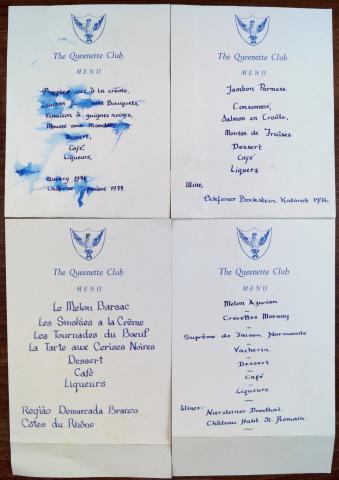 The Queenette Club
MENU
à la crême,
aux Bouquets,
Venaison à guignes noires,
Mousse aux
Dessert,
Café,
Liqueurs,
Quincy 1976
Château 1979.
The Queenette Club
MENU
Jambon Parmase
Consommé,
Salmon en Croûte,
Mousse de Fraises
Dessert
Café
Liquers
Wine,
Ockfener Bockstein Kabinet 1976.
The Queenette Club
MENU
Le Melon Barsac
Les Smolües a la Crême
Les Tournades du Boeuf
La Tarte aux Cerises Noires
Dessert
Café
Liqueurs
Região Demarcada Branco
Côtes du Rhône
The Queenette Club
MENU
Melon
Crevettes Mornay
Suprême de Faison Normande
Vacherin.
Dessert.
Café
Liqueurs.
Wines:- Niersteiner Domthal.
Château Haut St. Romain.